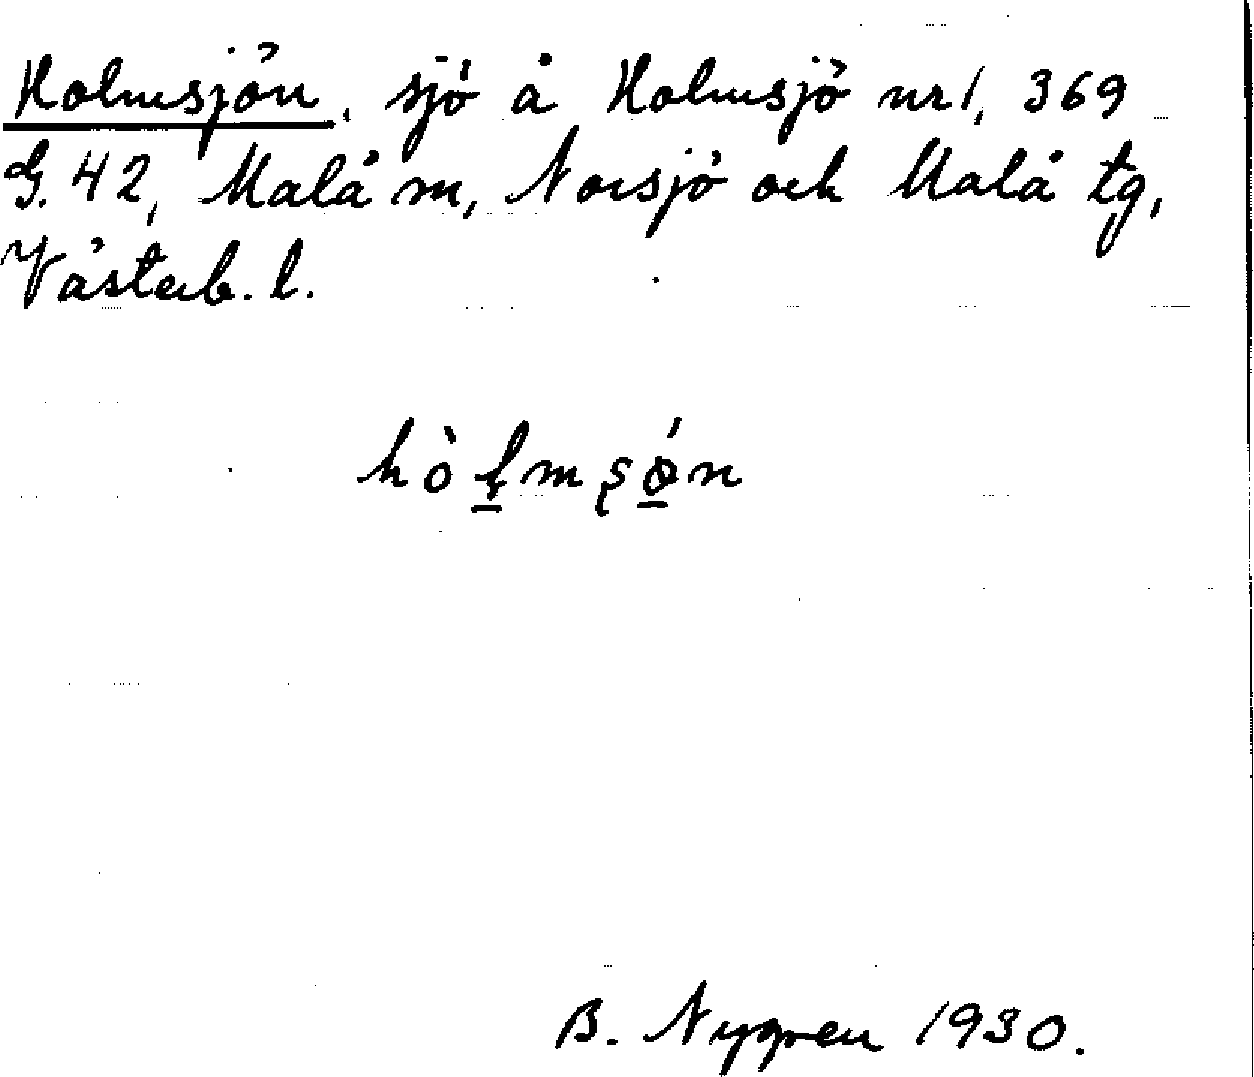 Holmsjön, sjö å Holmsjö nr 1, 369
G. 42, Malå m, Norsjö och Malå tg,
Västerb. l.
hòl̠mʂǿ̠n
B. Nygren 1930.